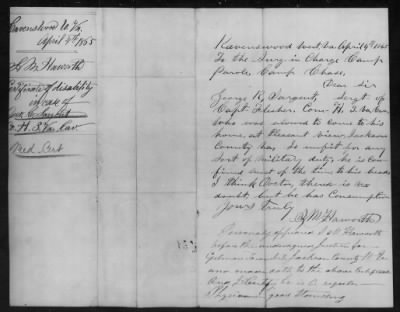 Ravenswood W. Va.
April 4th 1865
Haworth
Certificate of disability
in case of
Med. Cert
Ravenswood West Va April 4th 1865
To the Surg. in Charge Camp
Parole, Camp Chase,
Dear Sir
George R. Sargent, Sergt of
Capt
who was allowed to come to his
home, at Pleasant View, Jackson
County Va, is unfit for any
sort of military duty, he is con-
fined most of the time to his bed
I think Doctor, there is no
doubt, but he has Consumption
Yours Truly
Haworth
Personally appeared Haworth
before the undersigned Justice for
Jackson County W. Va
and made oath to the above Certificate
And I Certify he is a
Physician good Standing